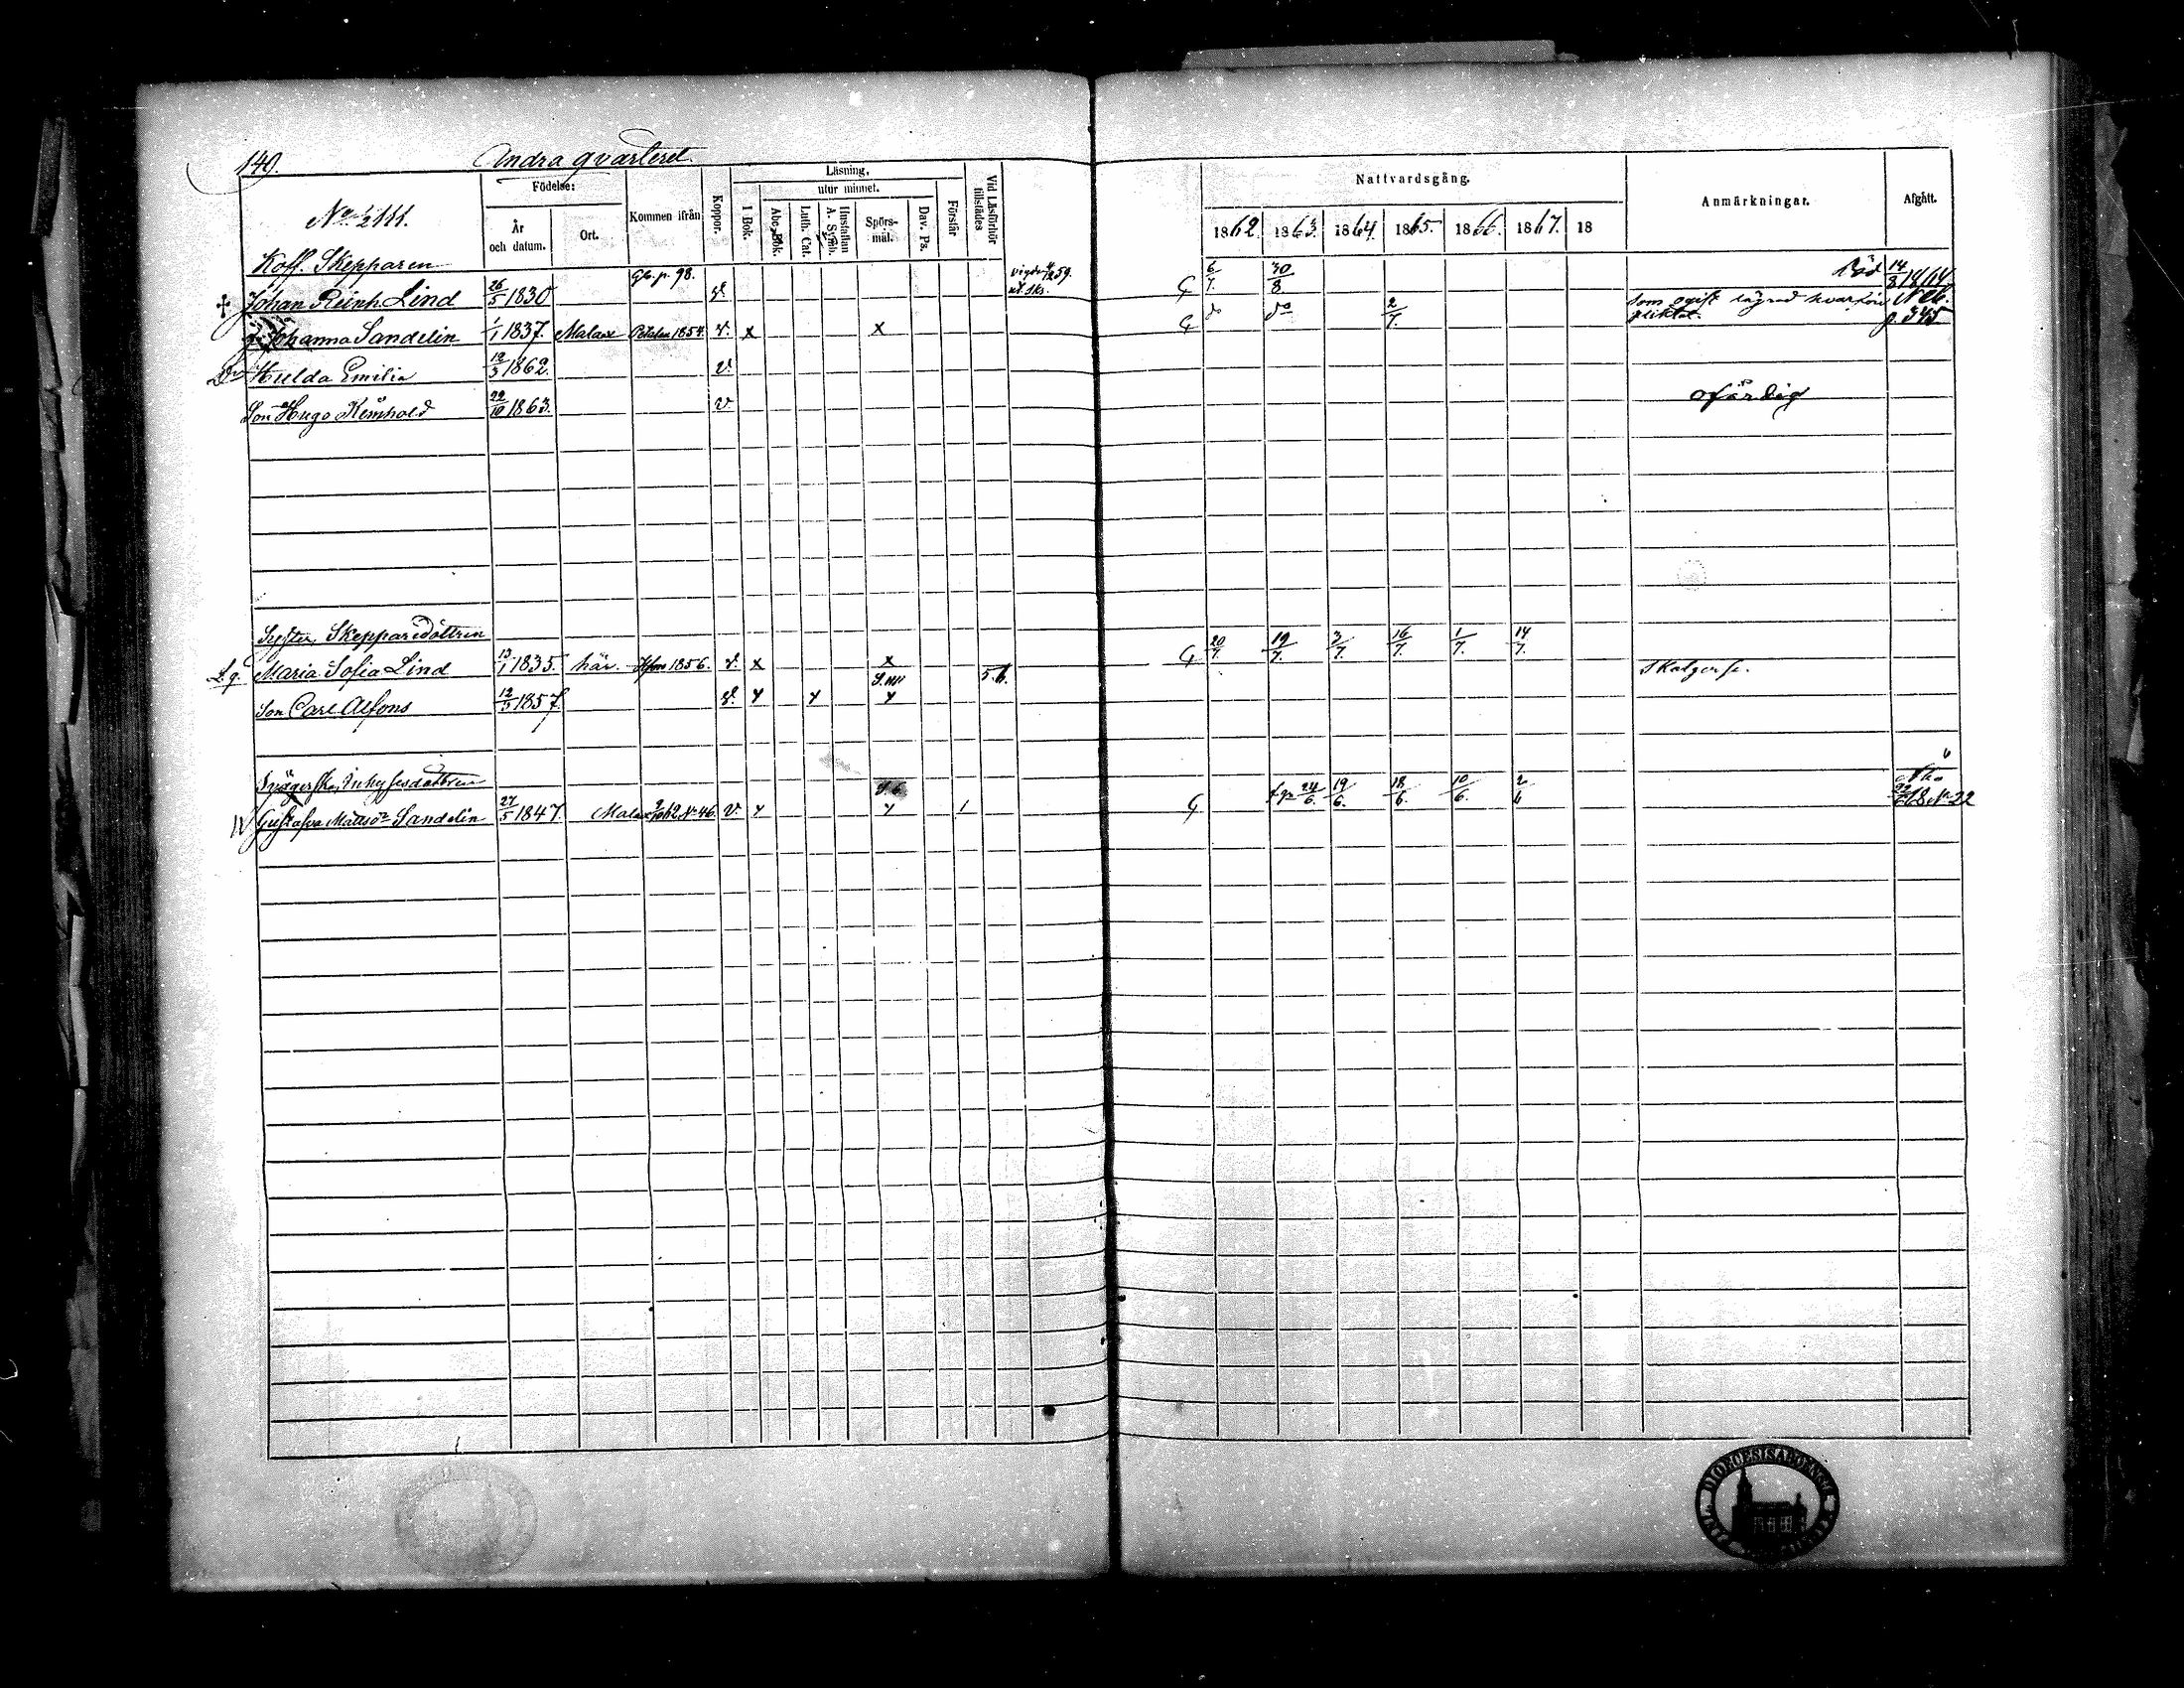 149. Andra qvarteret.
No 1/2 111.
Födelse:
År och datum.
Ort.
Kommen ifrån
Koppor.
Läsning,
I Bok.
utur minnet.
Abc-Bok.
Luth. Cat.
Hustaflan A. Symb.
Spörs-mål.
Dav. Ps.
Förstår
Vid Läsförhör tillstädes
Nattvardsgång.
1862. 1863. 1864. 1865. 1866. 1867. 18
Anmärkningar.
Afgått.
Koff. Skepparen Gb. p. 98. 6/7. 30/8 Död 14/8 1864
Johan Reinh. Lind 26/5 1830 v.
Johanna Sandelin 1/1 1837. Malax Petalax 1854. v. x x do do 2/7. som ogift lägrad hvarför pliktat. p. 345
Dr Hulda Emilia 19/3 1862. v.
Son Hugo Reinhold 29/10 1863. v. ofärdig
Syster, Skepparedottren 20/7. 19/7. 3/7. 16/7. 1/7. 14/7.
Maria Sofia Lind 13/1 1835. här. 1856. v. x x 5.6.
Son Carl Alfons 12/5 1857. v. x x x
Svägerska, Inhysesdottren 24/6. 19/6. 18/6. 10/6. 2/6
Gustafva Mattsdr Sandelin 27/5 1847. Malax 62 No 46. v. x x 1 68 No 22
DIOECESIS ABOENSIS